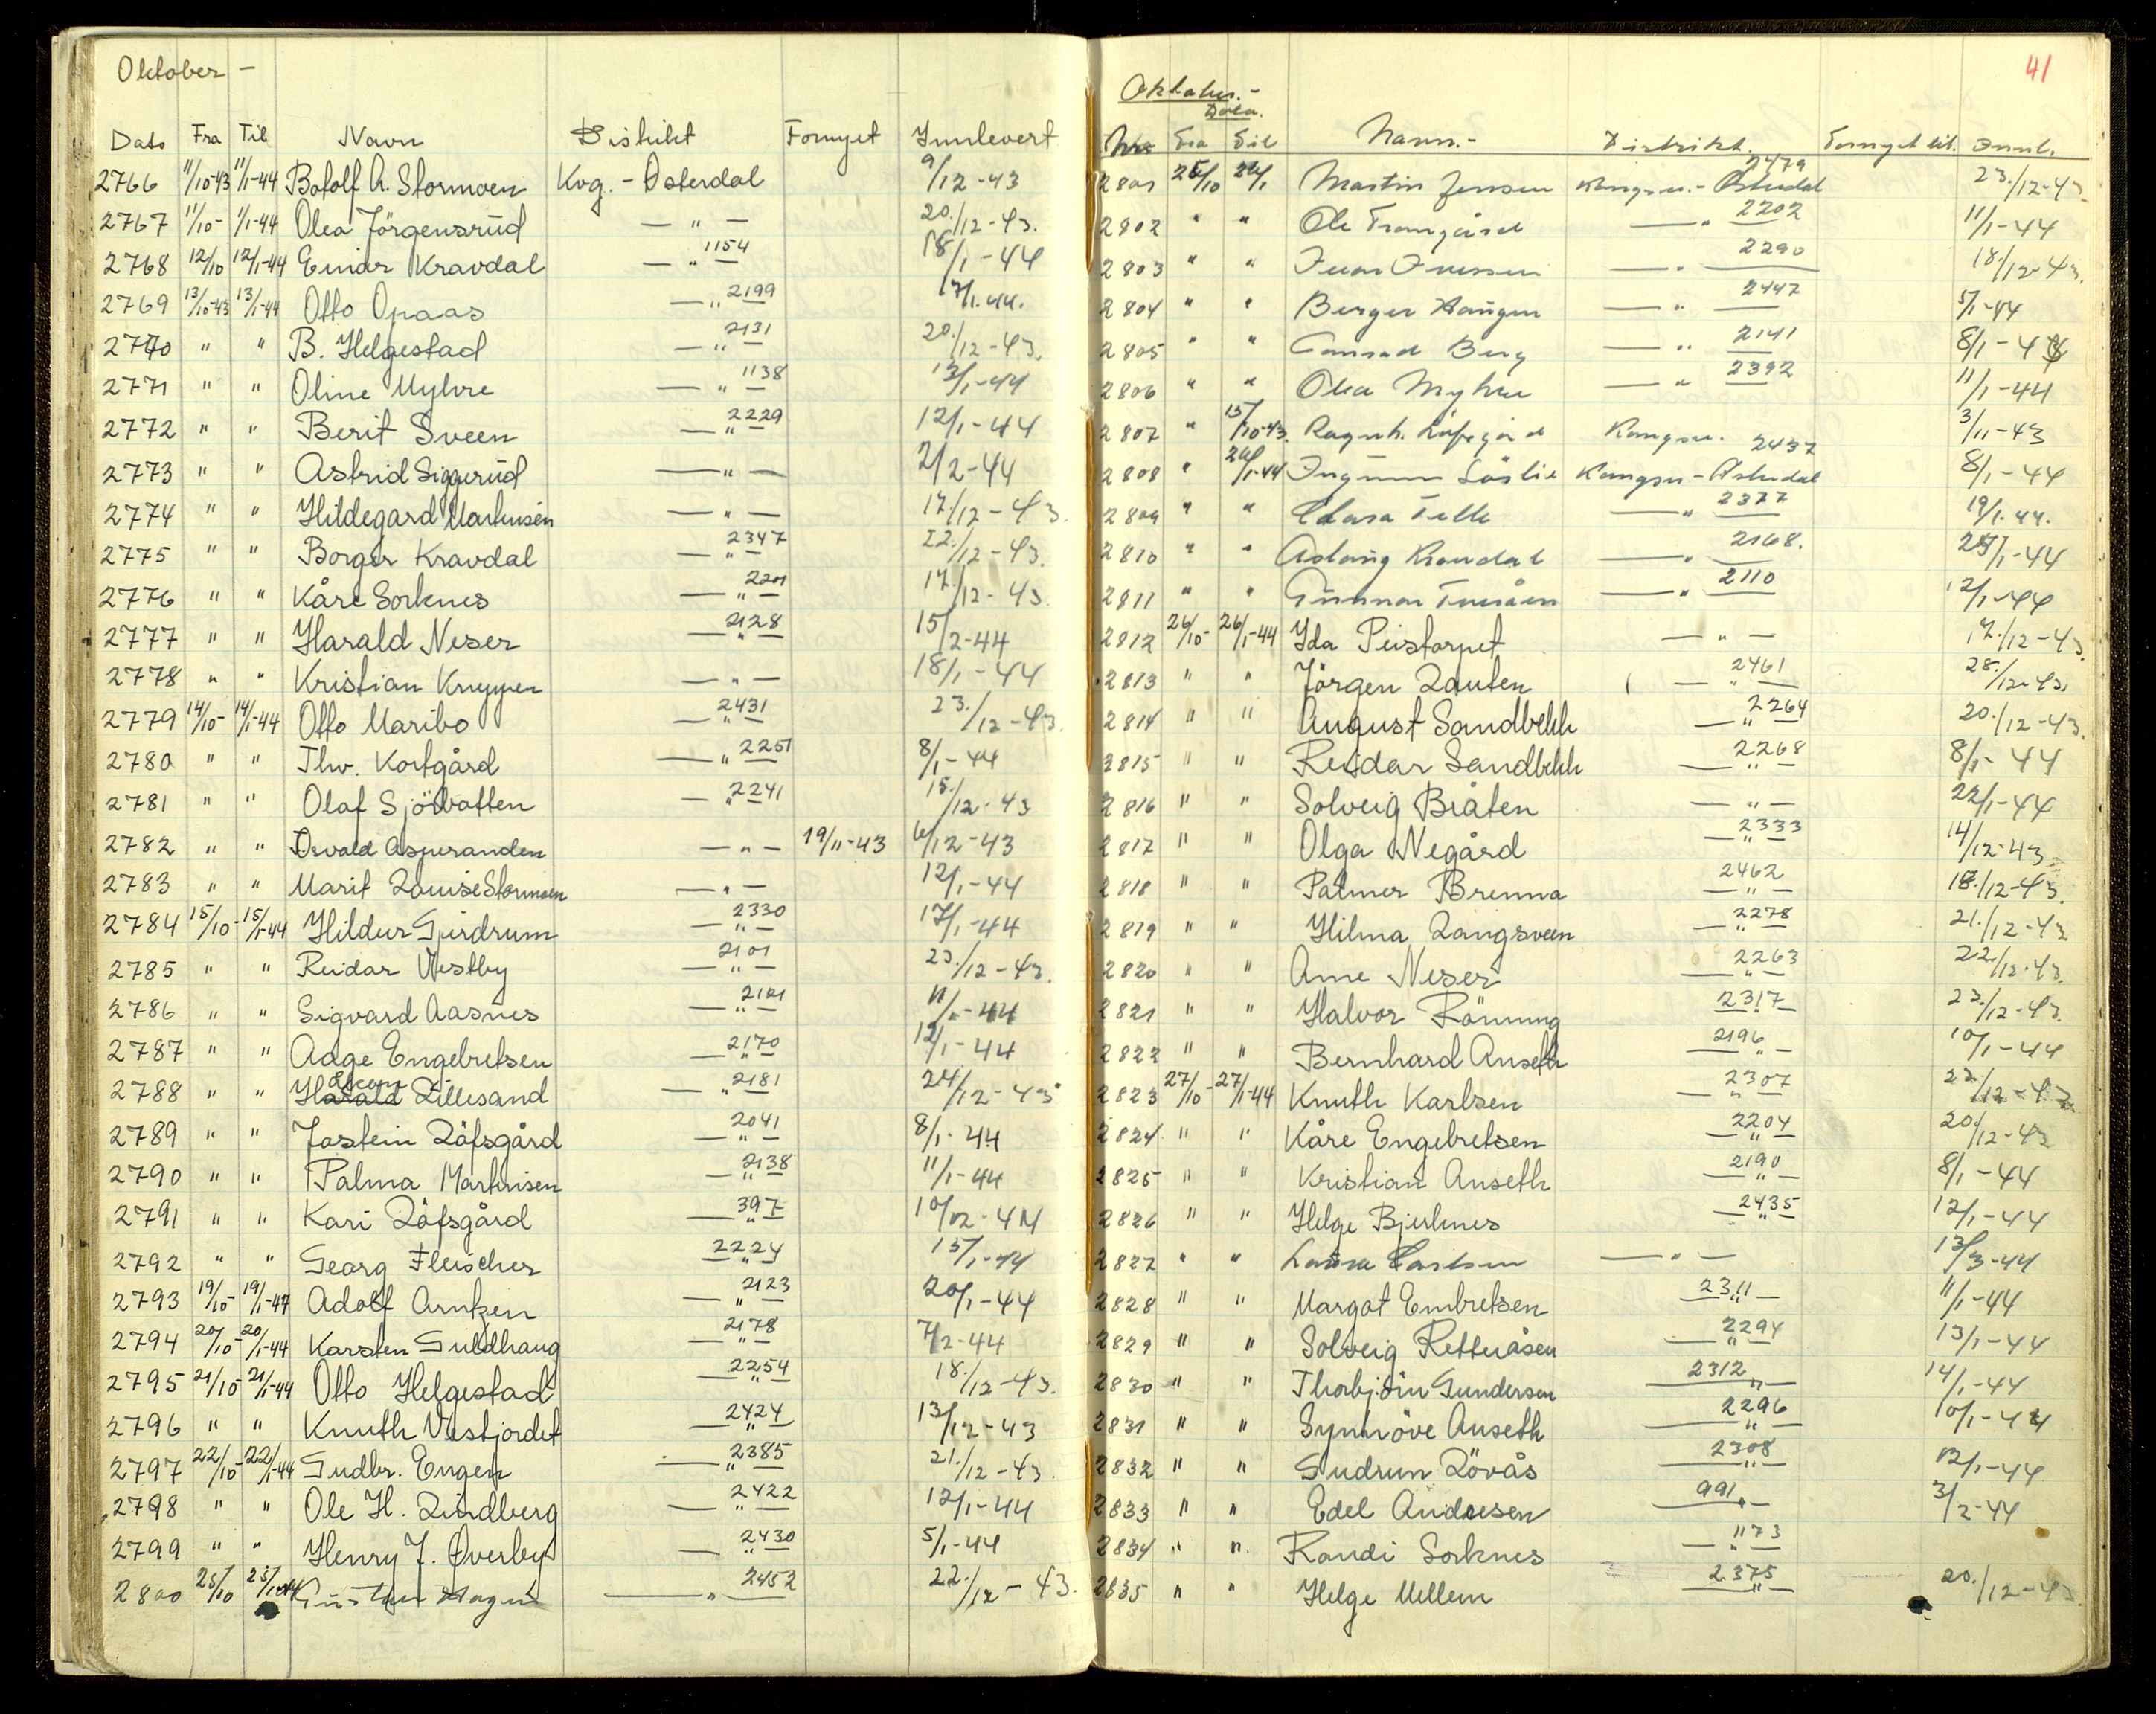 Oktober -
Dato Fra Til Navn Distrikt Fornyet Innlevert
2766 11/10-43 11/1-44 Botolf A. Stormoen Kvg. - Østerdal 9/12-43
2767 11/10- 1/1-44 Olea Jörgensrud — " — 20./12-43.
2768 12/10 12/1-44 Einar Kravdal — " — 1154 18/1-44
2769 13/10-43 13/1-44 Otto Opaas — " — 2199 17/1.44.
2770 " " B. Helgestad — " — 2131 20./12-43.
2771 " " Oline Myhre — " — 1138 13/1-44
2772 " " Berit Sveen — " — 2229 12/1-44
2773 " " Astrid Siggerud — " — 2/2-44
2774 " " Hildegard Martinsen — " — 17/12-43.
2775 " " Borger Kravdal — " — 2347 22./12-43.
2776 " " Kåre Sorknes — " — 2201 17./12-43.
2777 " " Harald Neser — " — 2128 15/2-44
2778 " " Kristian Knyppen — " — 18/1-44
2779 14/10- 14/1-44 Otto Maribo — " — 2431 23./12-43
2780 " " Thv. Kortgård — " — 2251 8/1-44
2781 " " Olaf Sjövatten — " — 2241 15./12-43
2782 " " Osvald Asperanden — " — 19/11-43 6/12-43
2783 " " Marit Louise Stormoen — " — 12/1-44
2784 15/10- 15/1-44 Hildur Gjerdrum — " — 2330 17/1-44
2785 " " Reidar Vestby — " — 2101 23./12-43.
2786 " " Sigvard Aasnes — " — 2121 11/1-44
2787 " " Aage Engebretsen — " — 2170 12/1-44
2788 " " Harald Håkon Lillesand — " — 2181 24/12-43
2789 " " Jostein Löfsgård — " — 2041 8/1-44
2790 " " Palma Martinsen — " — 2138 11/1-44
2791 " " Kari Löfsgård — " — 397 10/12-44
2792 " " Georg Fleischer — " — 2224 15/1-44
2793 19/10- 19/1-44 Adolf Arntzen — " — 2123 20/1-44
2794 20/10- 20/1-44 Karsten Guldhaug — " — 2178 7/2-44
2795 21/10- 21/1-44 Otto Helgestad — " — 2254 18./12-43.
2796 " " Knuth Vestjordet — " — 2424 13/12-43
2797 22/10- 22/1-44 Gudbr. Engen — " — 2385 21./12-43.
2798 " " Ole H. Lindberg — " — 2422 12/1-44
2799 " " Henry J. Øverby — " — 2430 5/1-44
2800 25/10 25/1-44 Hagen — " — 2452 22./12-43.
41
Oktober.-
Dato.
Nr. Fra Til Navn.- Distrikt. Fornyet til. Innl.
2801 25/10 24/1 Martin Jensen Kongsv.- Østerdal 2479 23./12-43.
2802 " " Ole Tramgård — " — 2202 11/1-44
2803 " " Ivar Iversen — " — 2290 18/12-43.
2804 " " Berger Haugen — " — 2447 5/1-44
2805 " " Conrad Berg — " — 2141 8/1-44
2806 " " Olea Myhre — " — 2392 11/1-44
2807 " 15/10-43. Ragnh. Löfsgård Kongsv. 3/11-43
2808 " 24/1-44 Ingunn Låslie Kongsv - Østerdal 2437 8/1-44
2809 " " Clara Telle — " — 2377 19/1.44.
2810 " " Aslaug Kravdal — " — 2168. 24/1-44
2811 " " Gunnar Tveråen — " — 2110 12/1-44
2812 26/10- 26/1-44 Ida Peistorpet — " — 17./12-43.
2813 " " Jörgen Lauten — " — 2461 28./12-43.
2814 " " August Sandbekk — " — 2264 20./12-43.
2815 " " Reidar Sandbekk — " — 2268 8/1-44
2816 " " Solveig Bråten — " — 22/1-44
2817 " " Olga Negård — " — 2333 14/12-43
2818 " " Palmer Brenna — " — 2462 18./12-43.
2819 " " Hilma Langsveen — " — 2278 21./12-43
2820 " " Arne Neser — " — 2263 22/12.43.
2821 " " Halvor Rönning — 2317 — 23./12-43.
2822 " " Bernhard Anseth — " — 2196 10/1-44
2823 27/10- 27/1-44 Knuth Karlsen — " — 2307 22/12-43
2824 " " Kåre Engebretsen — " — 2204 20./12-43
2825 " " Kristian Anseth — " — 2190 8/1-44
2826 " " Helge Bjerknes — " — 2435 12/1-44
2827 " " Laura Carlsen — " — 13/3-44
2828 " " Margot Embretsen — " — 2311 11/1-44
2829 " " Solveig Rettuåsen — " — 2294 13/1-44
2830 " " Thorbjörn Gundersen — " — 2312 14/1-44
2831 " " Synnöve Anseth — " — 2296 10/1-44
2832 " " Gudrun Lövås — " — 2308 12/1-44
2833 " " Edel Andresen — " — 991 3/2-44
2834 " " Randi Sorknes — " — 1173
2835 " " Helge Mellem — " — 2375 20./12-43.